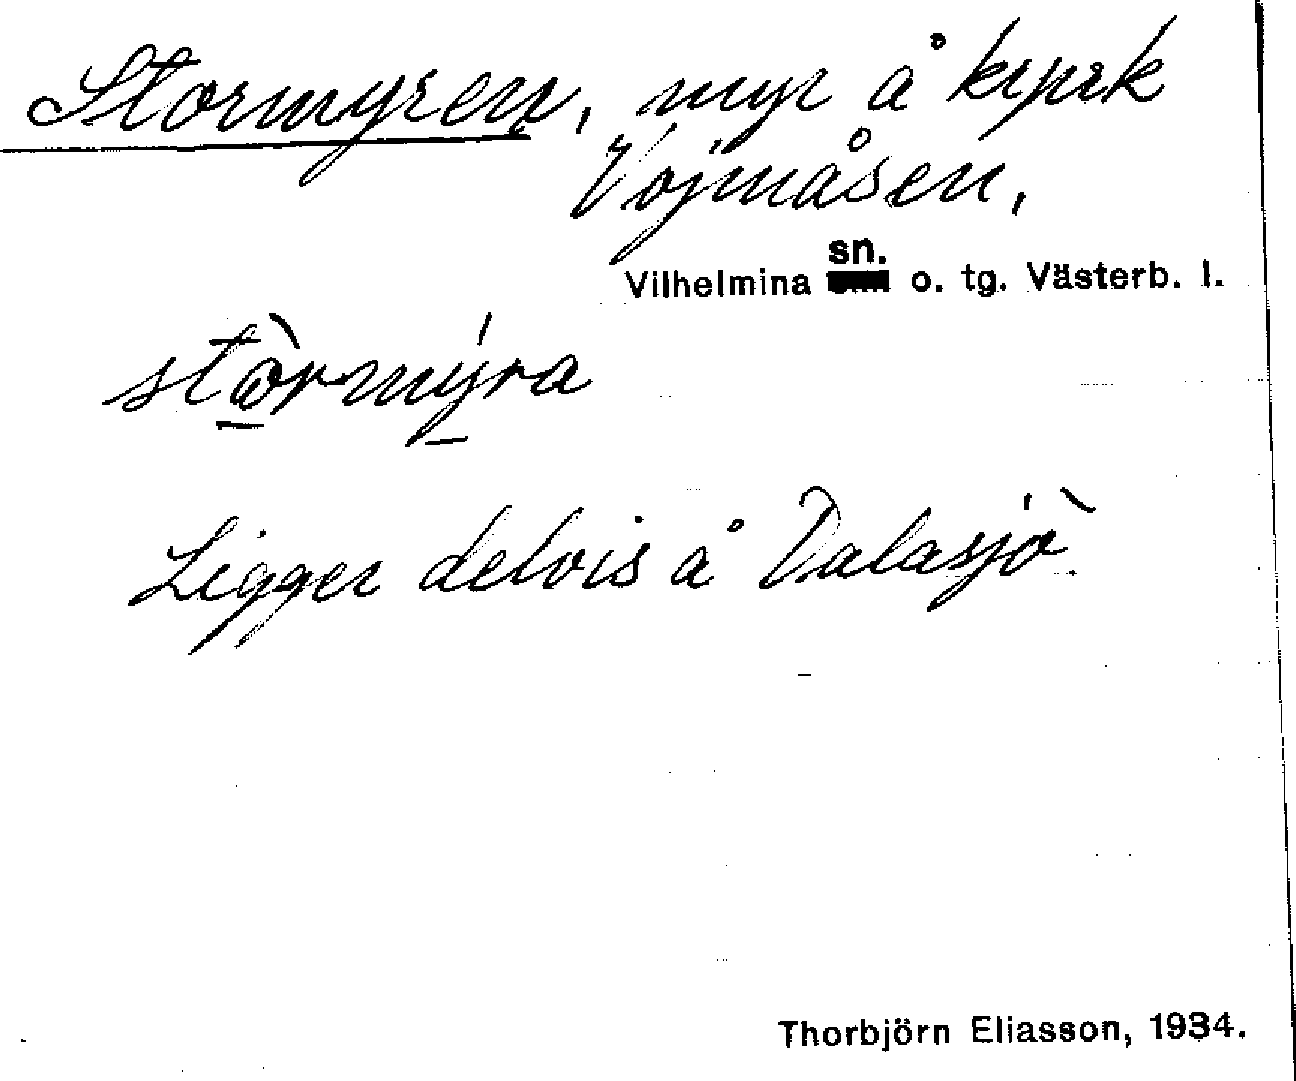 Stormyren, myr å kprk
Vojmåsen,
sn.
Vilhelmina o. tg. Västerb. l.
stòrmýra
Ligger delvis å Dalasjö
Thorbjörn Eliasson, 1934.